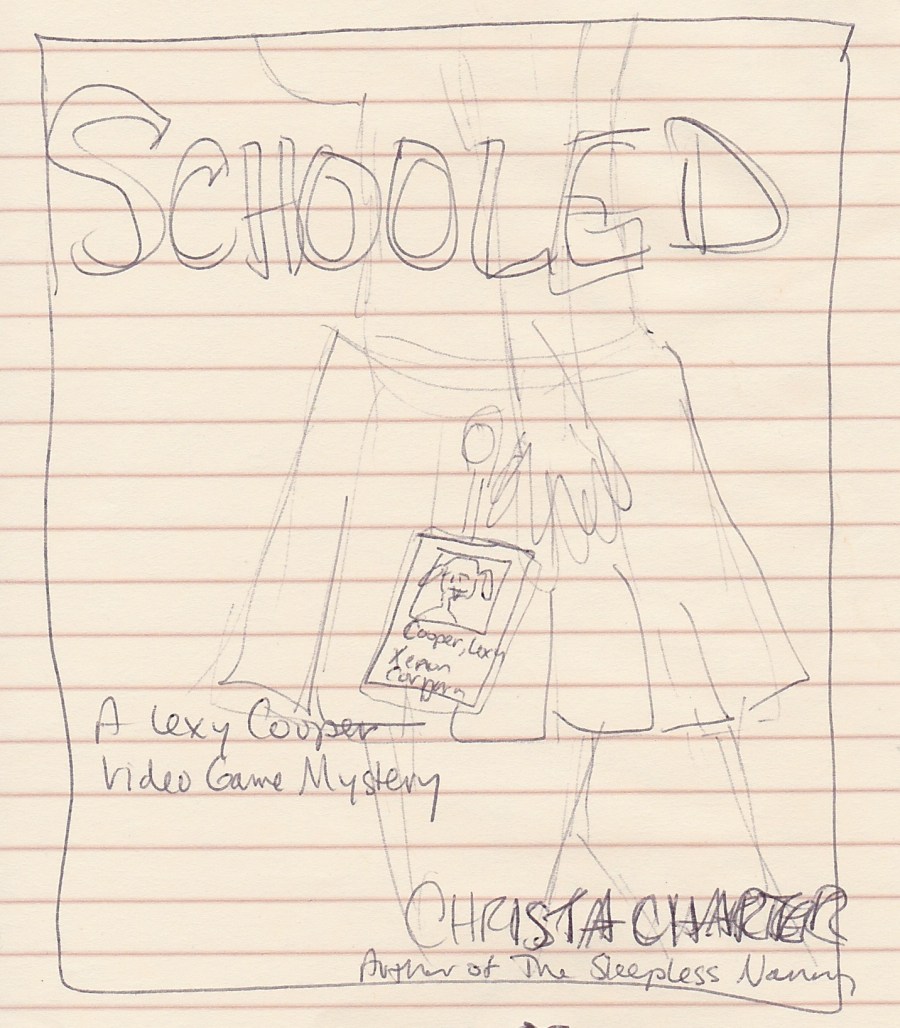 SCHOOLED
Cooper, Lexy
Xenon
A Lexy Cooper
Video Game Mystery
CHRISTA CHARTER
Author of The Sleepless Nanny